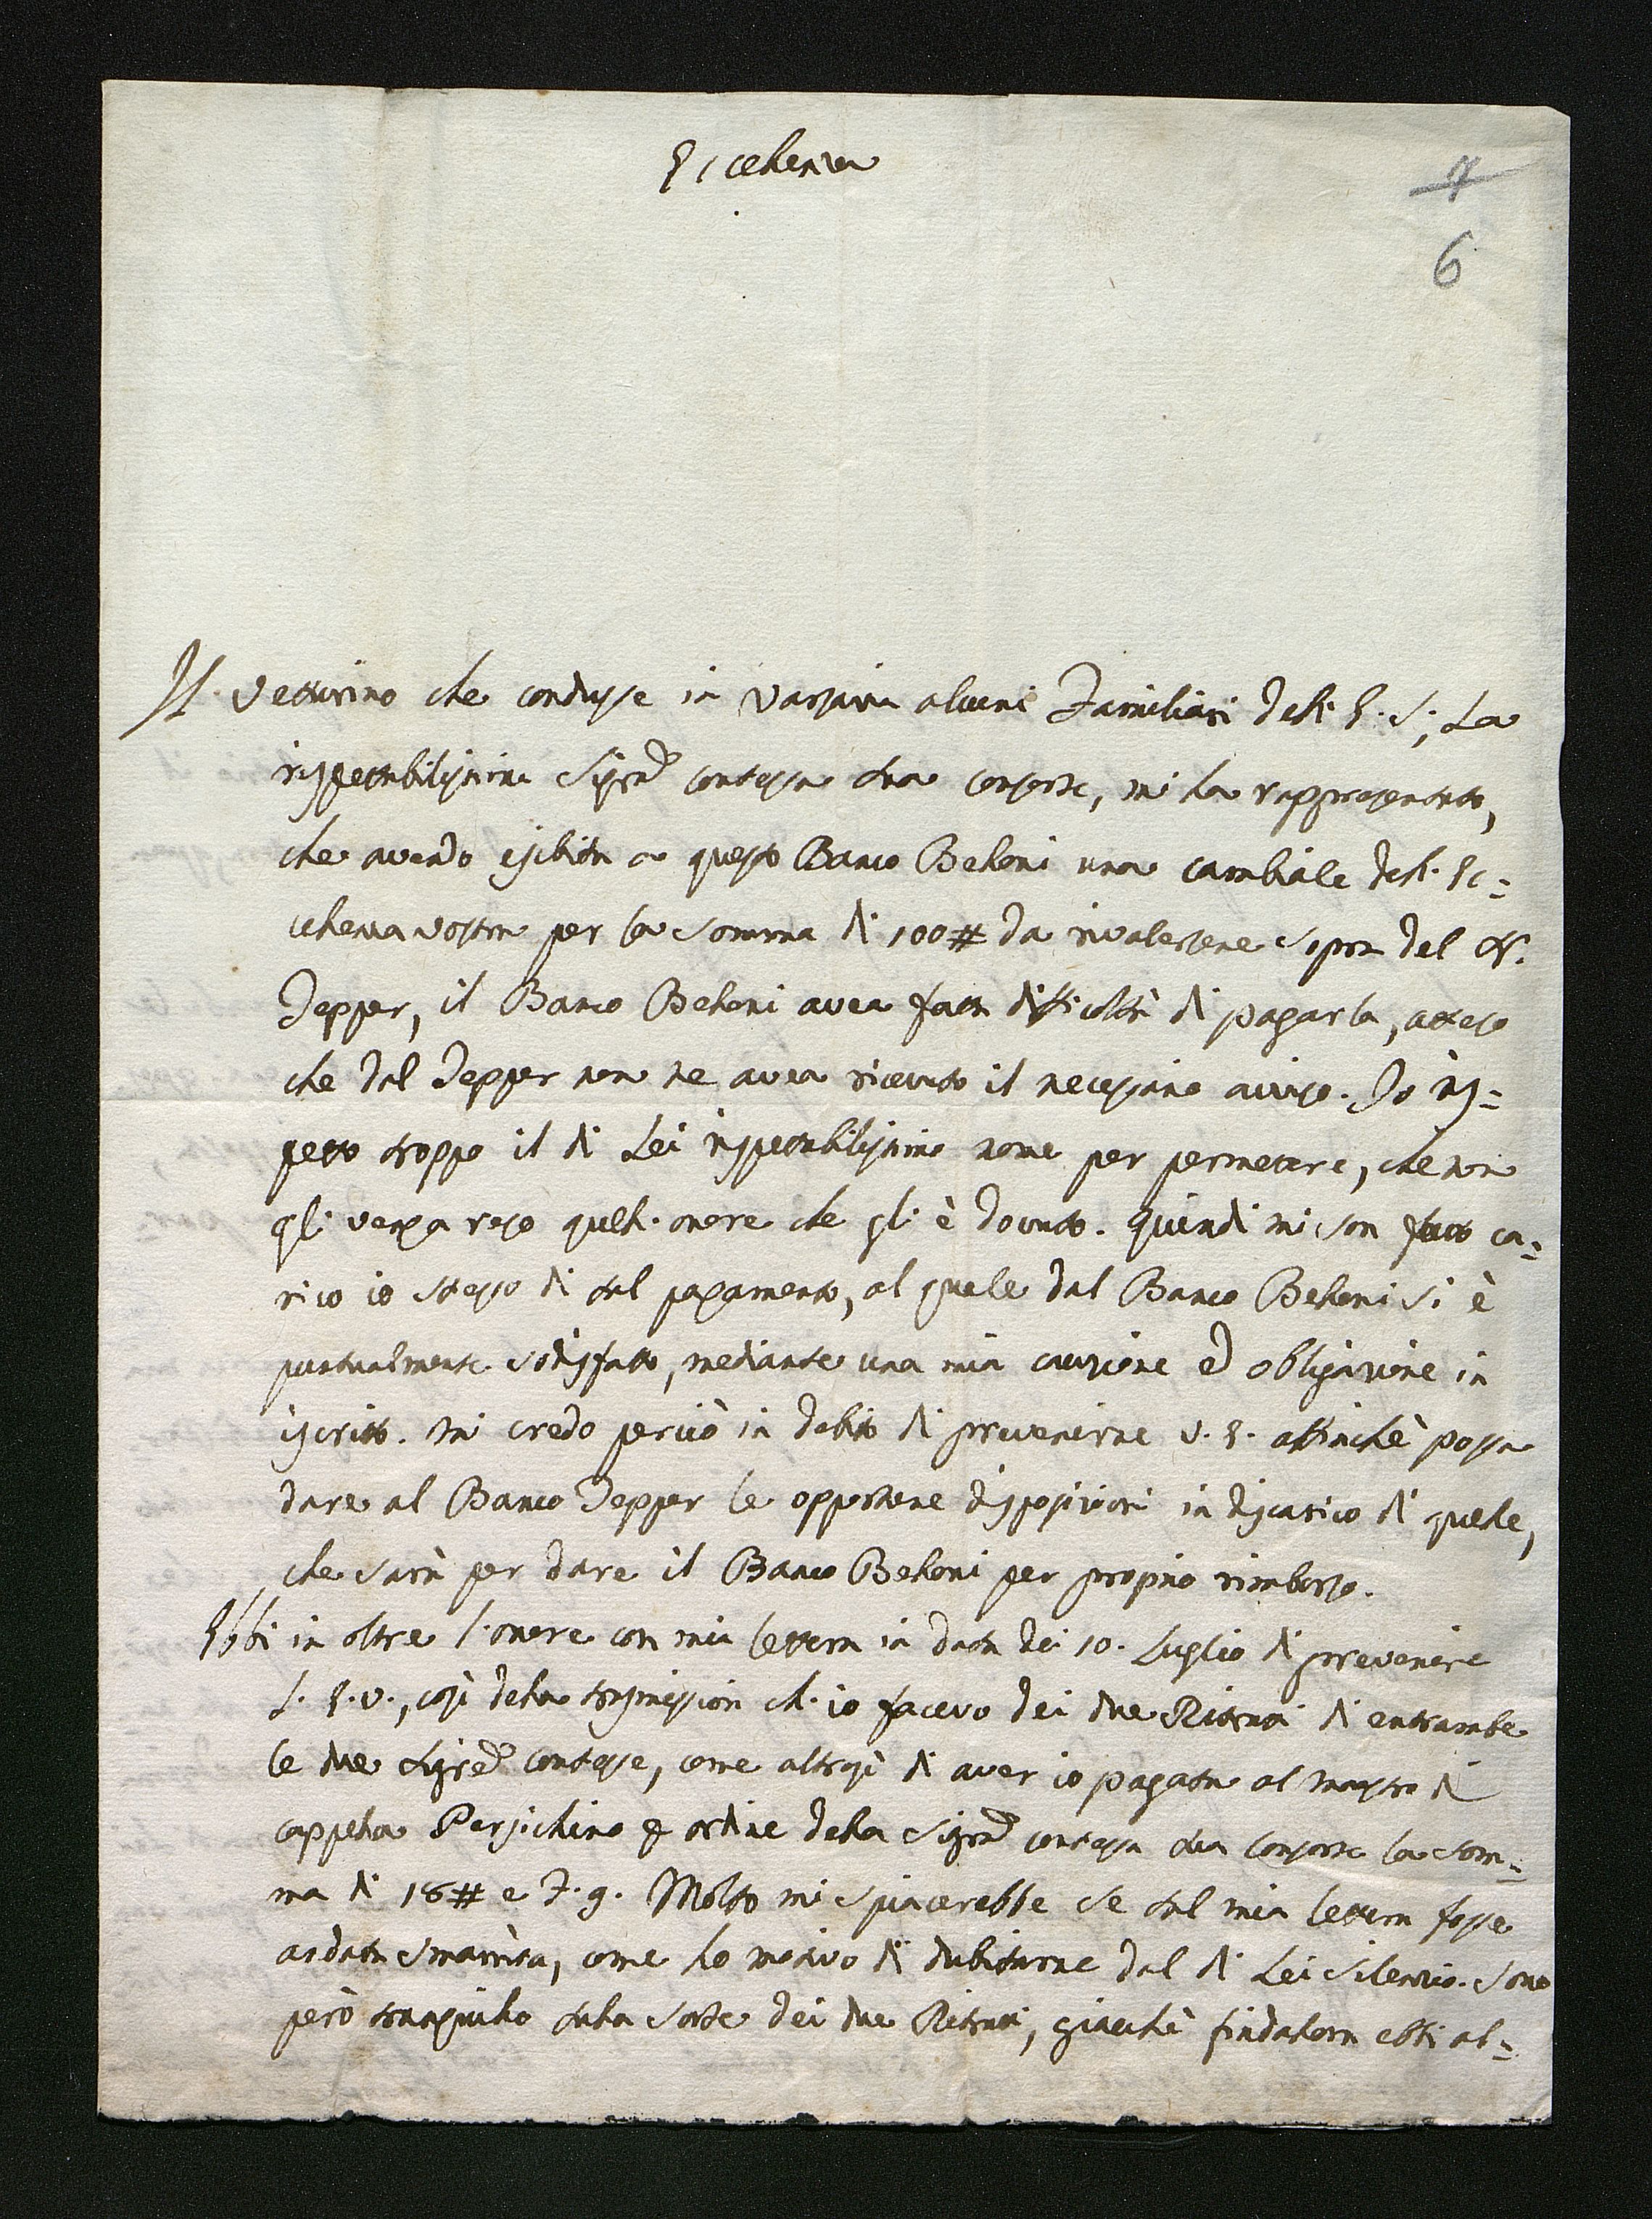 Eccellenza
7
6
Il Vetturino che condusse in Varsavia alcuni Familiari dell'E. S., La
rispettabilissima Sigra contessa Sua consorte, mi ha rappresentato,
che avendo esibita a questo Banco Belloni una cambiale dell'Ec=
cellenza vostra per la somma di 100# da rivalersene sopra del
Tepper, il Banco Belloni avea fatta difficoltà di pagarla, atteso
che dal Tepper non ne avea ricevuto il necessario avviso. Io ris=
petto troppo il di Lei rispettabilissimo nome per permettere, che non
gli venga reso quell'onore che gli è dovuto. Quindi mi son fatto ca=
rico io stesso di tal pagamento, al quale dal Banco Belloni si è
puntualmente sodisfatto, mediante una mia cauzione ed obligazione in
iscritto. Mi credo perciò in debito di prevenirne V. E. affinchè possa
dare al Banco Tepper le opportune disposizioni in discarico di quelle,
che sarà per dare il Banco Belloni per proprio rimborso.
Ebbi in oltre l'onore con mia lettera in data dei 10. Luglio di prevenire
l'. E. V., così della trasmission ch'io facevo dei due Ritratti di entrambe
le due Sigre contesse, come altresì di aver io pagata al maestro di
cappella Persichino p ordine della Sigra contessa sua consorte la som=
ma di 18# e 7. g. Molto mi spiacerebbe se tal mia lettera fosse
andata smarrita, come ho motivo di dubitarne dal di Lei silenzio. Sono
però tranquillo sulla sorte dei due Ritratti, giacchè findallora ebbi al=